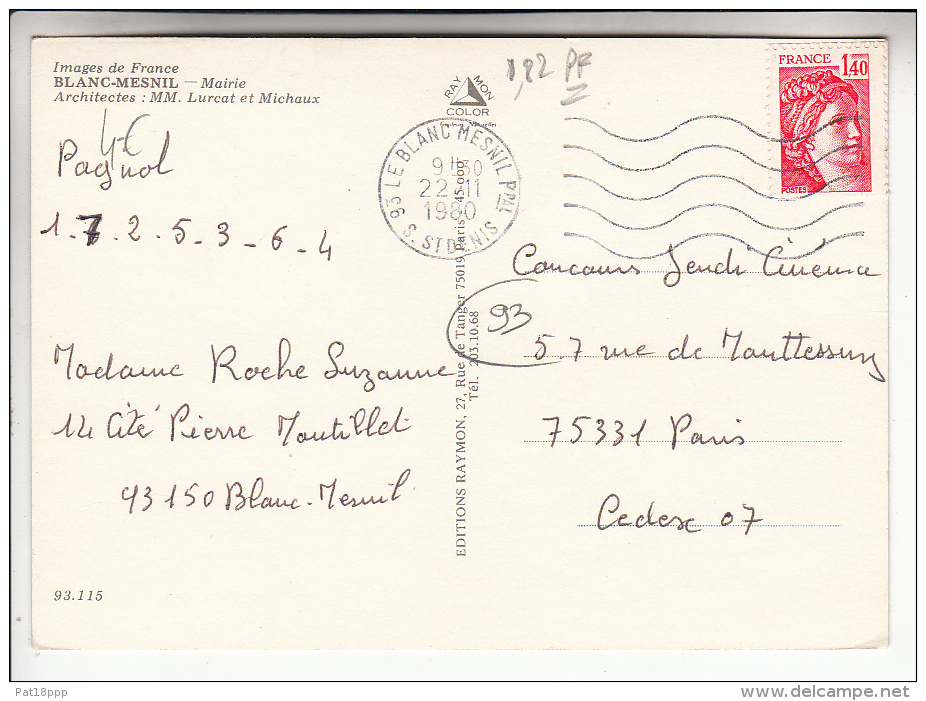 Images de France
BLANC-MESNIL — Mairie
Architectes : MM. Lurcat et Michaux
4€
Pagnol
1 . 7 . 2 - 5 - 3 - 6 - 4
Madame Roche Suzanne
14 Cité Pierre Montillet
93150 Blanc-Mesnil
93.115
1,92 PF
RAYMON
COLOR
93 LE BLANC MESNIL PPAL
9H30
22-11
1980
S. ST DENIS
EDITIONS RAYMON, 27, Rue de Tanger 75019 Paris
Tél. 203.10.68
FRANCE
1,40
POSTES
Concours Jeudi Cinéma
93
57 rue de
75331 Paris
Cedex 07
Pat18ppp
www.delcampe.net